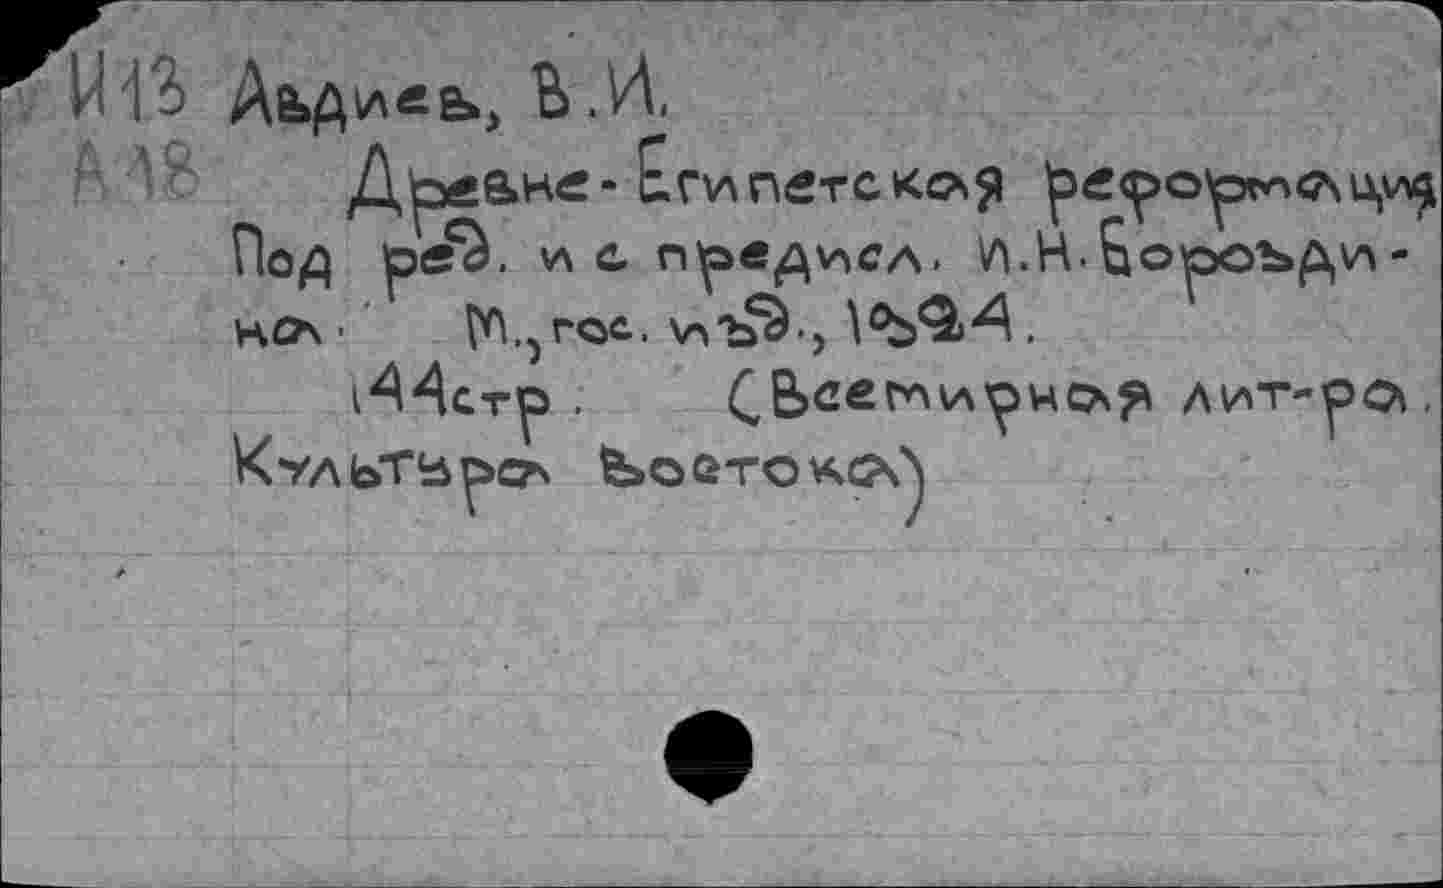 И13 Авдиев, В.И.
А18 Древне-Египетская реформация
Под ред. и с предисл. И.Н.Бороздина
на. М., гос. изд., 1924.
144стр. (Всемирная лит-ра.
Культура Востока)